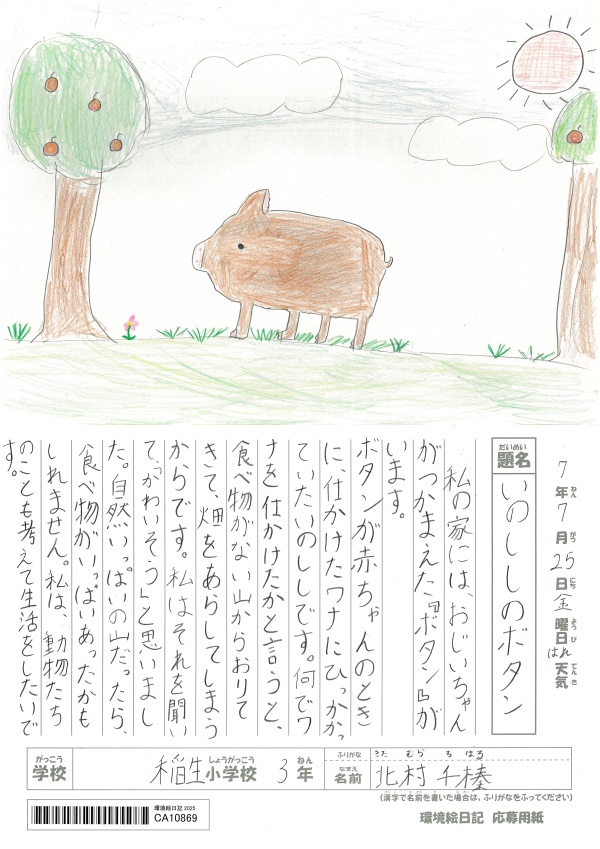 7年ねん7月がつ25日にち金曜日ようびはれ天気てんき
だいめい
題名
いのししのボタン
私の家には、おじいちゃん
がつかまえた『ボタン』が
います。
ボタンが赤ちゃんのとき
に、仕かけたワナにひっかかっ
ていたいのししです。何でワ
ナを仕かけたかと言うと、
食べ物がない山からおりて
きて、畑をあらしてしまう
からです。私はそれを聞い
て、「かわいそう」と思いまし
た。自然いっぱいの山だったら、
食べ物がいっぱいあったかも
しれません。私は、動物たち
のことも考えて生活をしたいで
す。
がっこう
学校
稲生小学校しょうがっこう 3年ねん
ふりがな
きたむら ちはる
なまえ
名前
北村 千榛
(漢字で名前を書いた場合は、ふりがなをふってください)
環境絵日記 2025
CA10869
環境絵日記 応募用紙